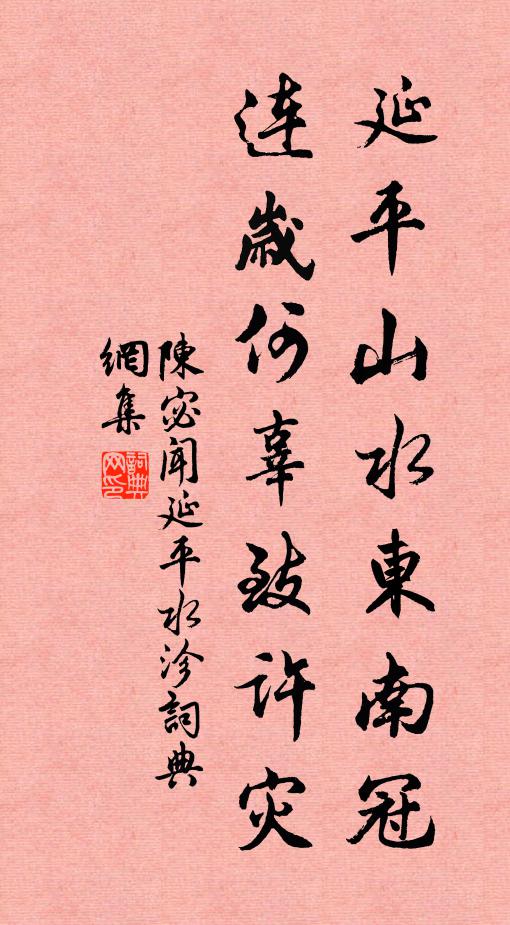 延平山水東南冠
連歲何辜致許灾
陳宓聞延平水沴詞典
網集
詞典網印